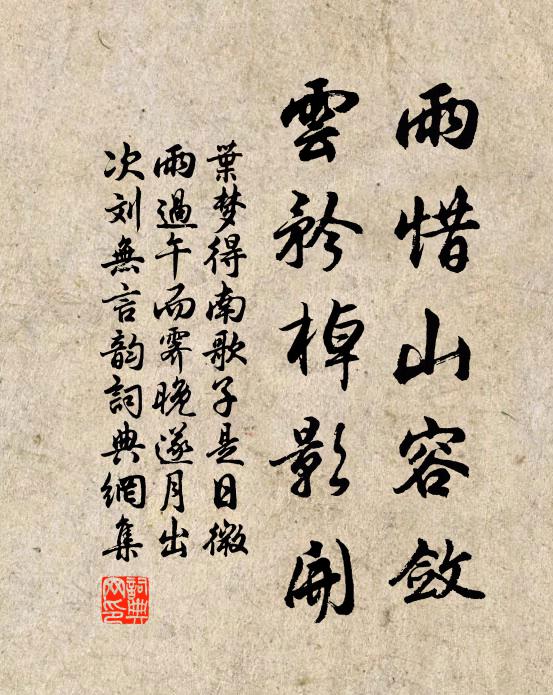 雨惜山容敛
雲矜棹影開
葉梦得南歌子是日微
雨過午而霽晚遂月出
次刘無言韵詞典網集
詞典網印